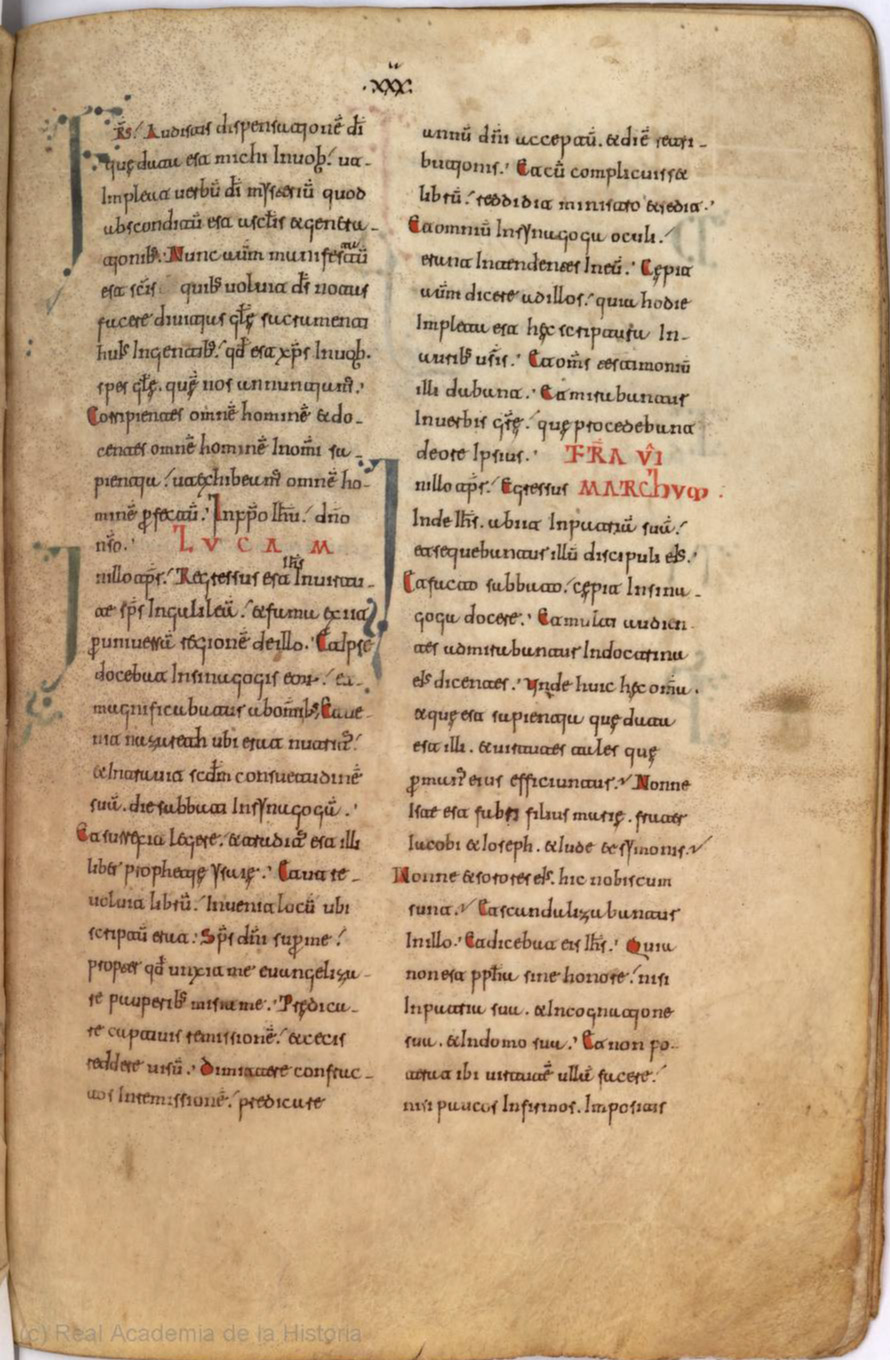 .xxxii.
Frs. Audistis dispensatione di
que data est michi In uob. ut-
Impleat uerbū dī mysteriū quod
absconditū est a sclis & genera-
tionib. Nunc autm manifestatū
est scis quib uoluit ds notas
facere diuitias gle sacramenti
huis In gentib. qd est xps In uob.
spes gle. que nos annuntiam.
Corripientes omnē hominē & do-
centes omnē hominē In omi sa-
pientia. ut exhibeam omnē ho-
minē pfectū. In xpo Ihu. dno
nso.
LUCAM
In illo tps. Regressus est Ihs In uirtu-
te sps In galileā. & fama exiit
p uniuersā regionē de illo. Et ipse
docebat In sinagogis eor. et
magnificabatur ab omib. Et ue-
nit nazareth ubi erat nutrit.
& Intrauit scdm consuetudinē
suā. die sabbati In synagogā.
Et surrexit legere. & tradit est illi
liber prophete ysaie. Et ut re-
uoluit librū. Inuenit locū ubi
scriptū erat. Sps dni sup me.
propter qd unxit me euangeliza-
re pauperib misit me. Predica-
re captiuis remissionē. & cecis
reddere uisū. Dimittere confrac-
tos In remissionē. predicare
annū dni acceptū. & diē retri-
butionis. Et cū complicuisset
librū. reddidit ministro & sedit.
Et omniū In synagoga oculi.
erant Intendentes In eū. Cepit
autm dicere ad illos. quia hodie
Impleta est hec scriptura In-
auribus uris. Et oms testimoniū
illi dabant. Et mirabantur
In uerbis gre. que procedebant
de ore Ipsius. FRA VI
MARCHUM
In illo tps. Egressus
Inde Ihs. abiit In patriā suā.
et sequebantur illū discipuli eis.
Et facto sabbato. cepit In sina-
goga docere. Et multi audien-
tes admirabantur In doctrina
eis dicentes. Vnde huic hec omia.
& que est sapientia que data
est illi. & uirtutes tales que
p man eius efficiuntur. Nonne
Iste est fabri filius marie. frater
Iacobi & Ioseph. & Iude & symonis.
Nonne & sorores eis. hic nobiscum
sunt. Et scandalizabantur
In illo. Et dicebat eis Ihs. Quia
non est ppha sine honore. nisi
In patria sua. & In cognatione
sua. & In domo sua. Et non po-
terat ibi uirtutē ullā facere.
nisi paucos Infirmos. Impositis
(c) Real Academia de la Historia